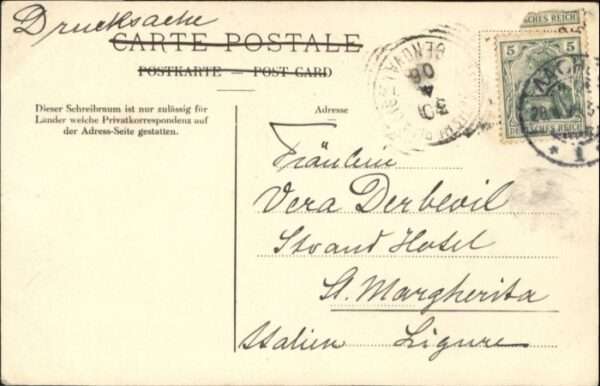 Drucksache
CARTE POSTALE
POSTKARTE — POST CARD
Dieser Schreibraum ist nur zulässig für
Länder welche Privatkorrespondenz auf
der Adress-Seite gestatten.
Adresse
DEUTSCHES REICH
5 5
DEUTSCHES REICH
AACHEN
1
30 4 06
Fräulein
Vera Derbevil
Strand Hotel
St. Margherita
Italien Ligure